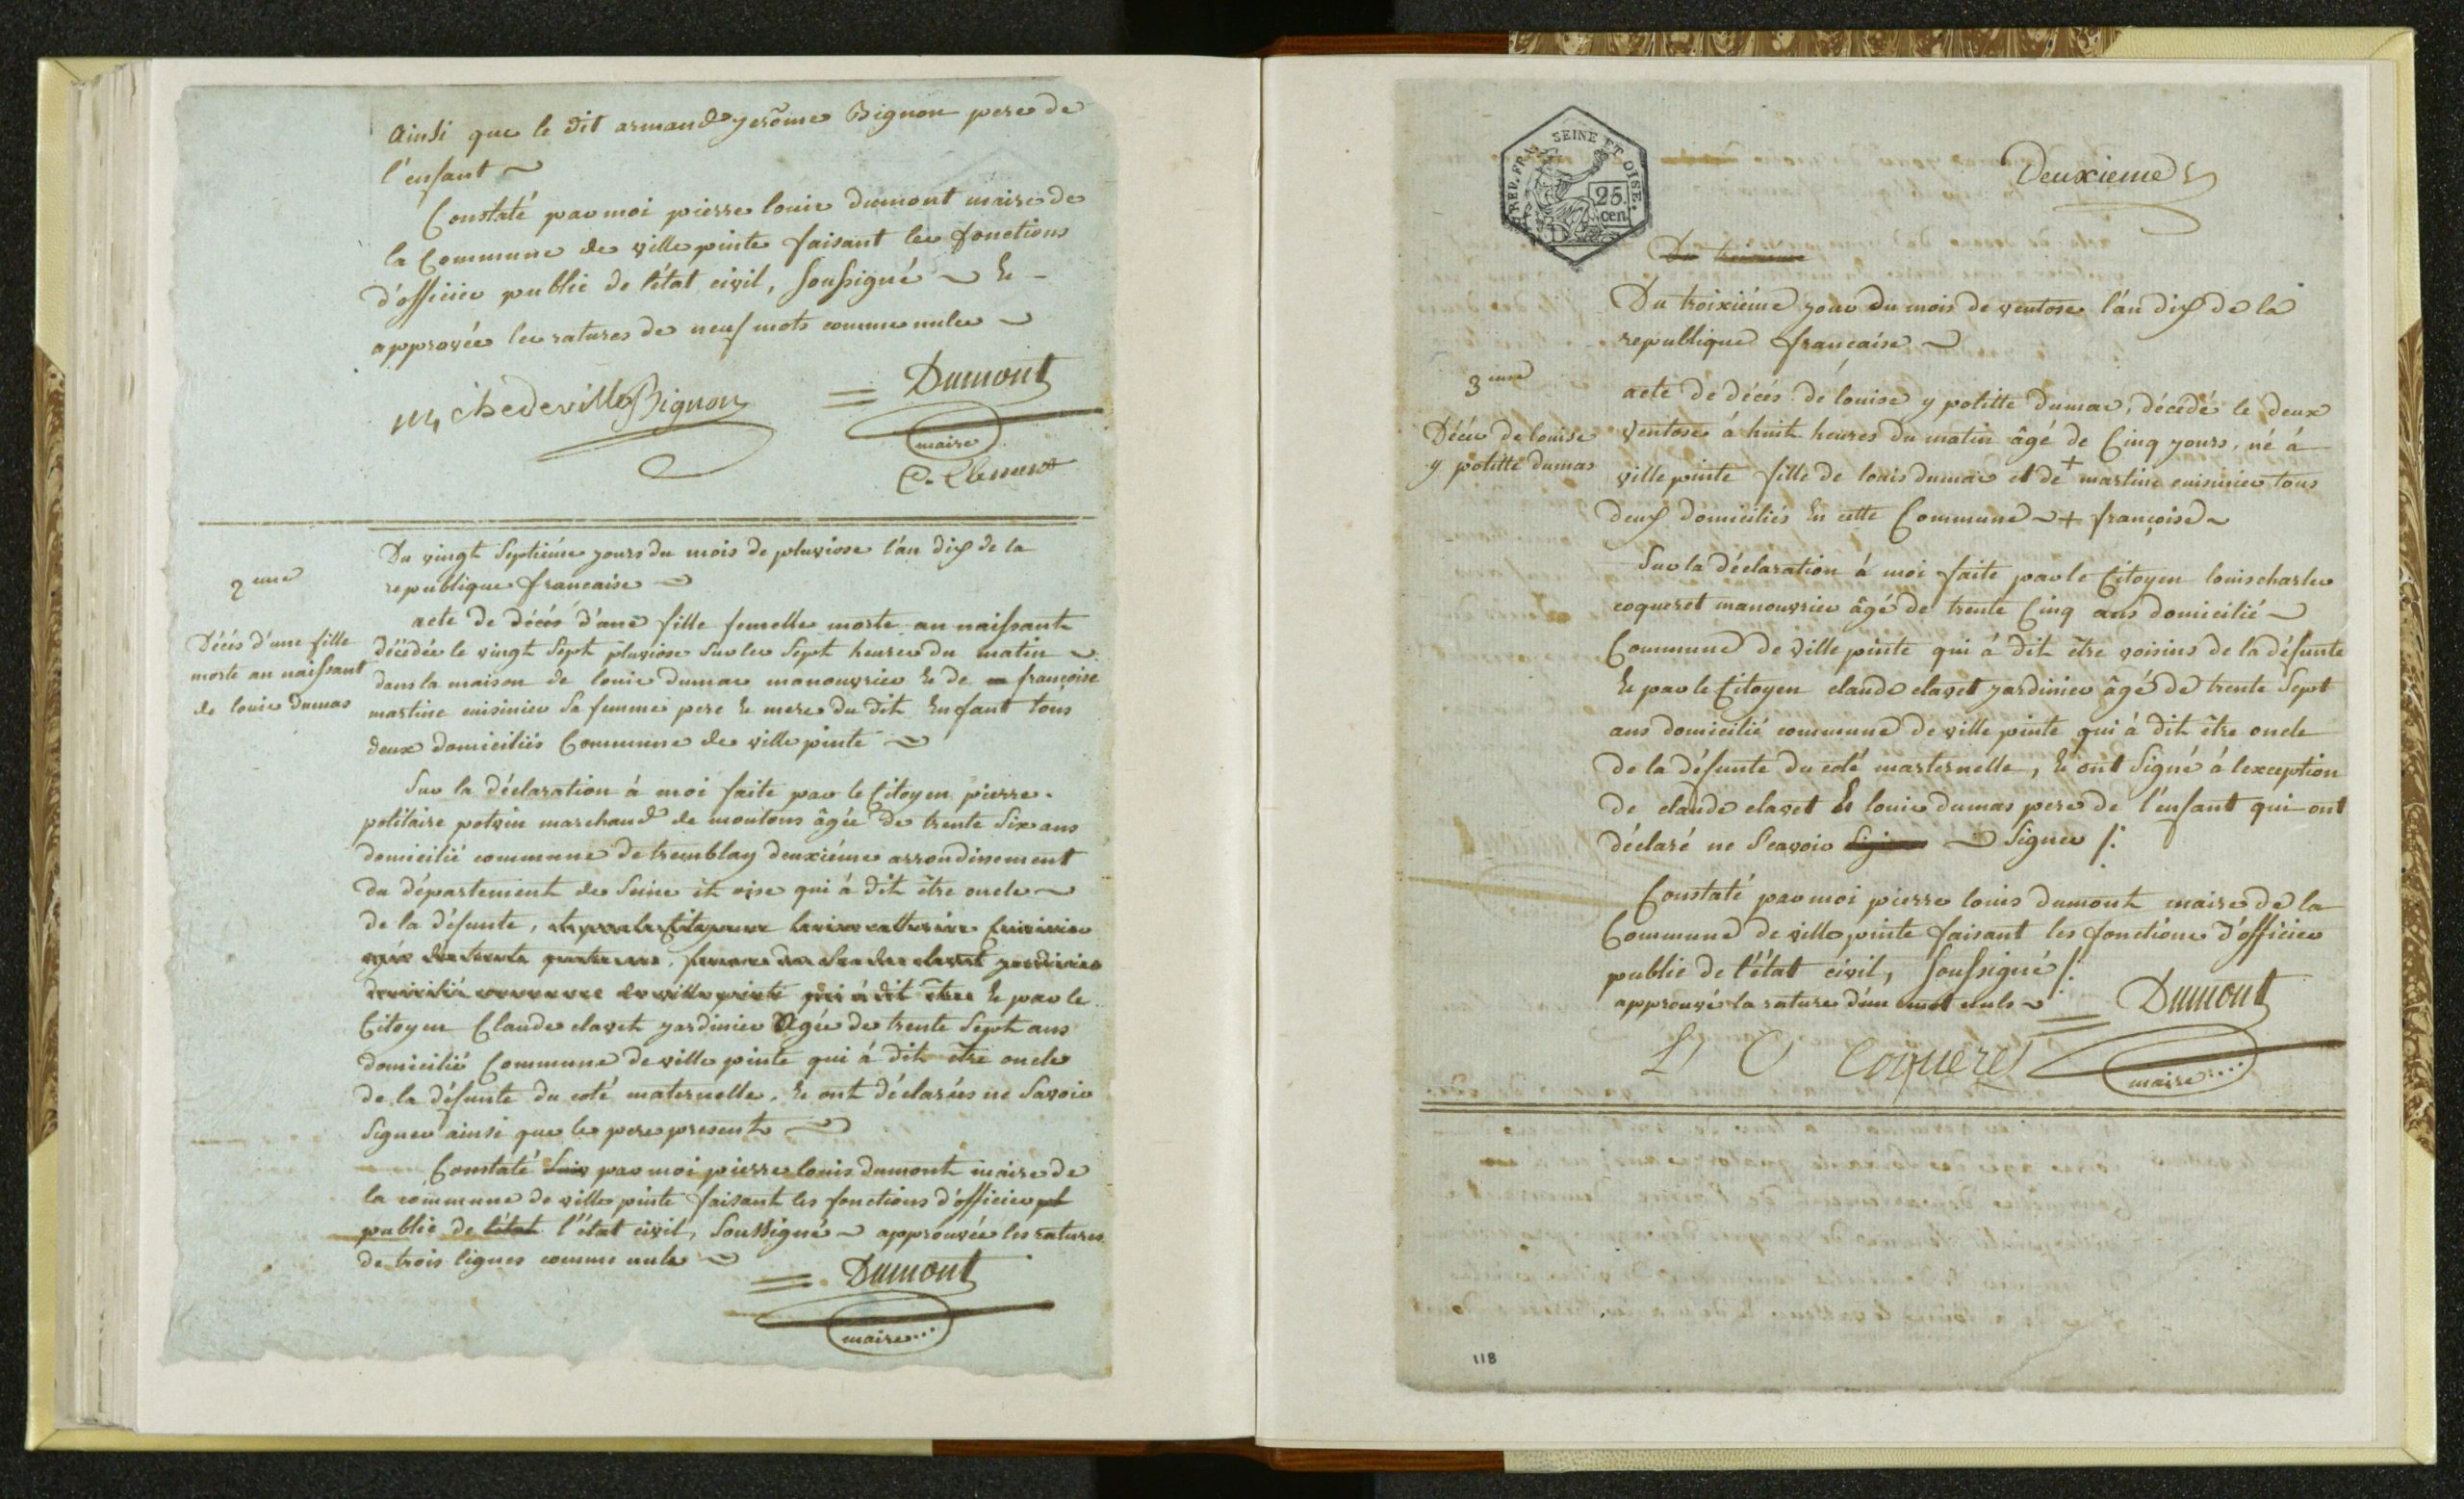 Ainsi que le dit armand gerôme Bignon pere de
l'enfant
Constaté par moi pierre louis dumont maire de
la Commune de villepinte faisant les fonctions
d'officier public de l'état civil, soussigné Et
approvée les ratures de neuf mots comme nulle
Mq chedeville Bignon Dumont
maire
C. Clement
2eme
Décés d'une fille
morte an naissant
de louis dumas
Du vingt septiéme jours du mois de pluviose l'an dix de la
republique francaise
acte de décés d'une fille femelle morte an naissante
décédée le vingt sept pluviose sur les sept heures du matin
dans la maison de louis dumas manouvrier Et de françoise
martine cuisinier sa femme pere Et mere du dit Enfant tous
deux domiciliés Commune de villepinte
Sur la déclaration à moi faite par le Citoyen pierre
politaire potvin marchand de moutons âgée de trente six ans
domicilié commune de tremblay deuxiéme arrondissement
du département de Seine et oise qui à dit être oncle
de la défunte,
Et par le
Citoyen Claude clavet jardinier Agée de trente Sept ans
domicilié Commune de villepinte qui à dit être oncle
de la défunte du coté maternelle, Et ont déclarées ne savoir
signer ainsi que le pere present
Constaté par moi pierre louis dumont maire de
la commune de villepinte faisant les fonctions d'officier
public de l'état l'état civil, soussigné approuvée les ratures
de trois lignes comme nule
Dumont
maire
REP. FRA. SEINE ET OISE.
25 cen
Deuxieme
Du troixiéme
Du troixiéme jour du mois de ventose l'an dix de la
republique française
3eme
Décès de louise
y politte dumas
acte de décés de louise y politte dumas, décédé le deux
ventose à huit heures du matin âgé de Cinq jours, né à
villepinte fille de louis dumas et de + martine cuisinier tous
deux domiciliés En cette Commune + françoise
Sur la déclaration à moi faite par le Citoyen louis charles
coqueret manouvrier âgé de trente Cinq ans domicilié
Commune de villepinte qui à dit être voisins de la défunte
Et par le Citoyen claude clavet jardinier âgé de trente Sept
ans domicilié commune de villepinte qui à dit être oncle
de la défunte du coté marternelle, Et ont signé à lexception
de claude clavet Et louis dumas pere de l'enfant qui ont
déclaré ne Scavoir signer
Constaté par moi pierre louis dumont maire de la
Commune de villepinte faisant les fonctions d'officier
public de l'état civil, soussigné
approuvé la rature d'un mot nuls
Dumont
L C Coqueret
maire
118